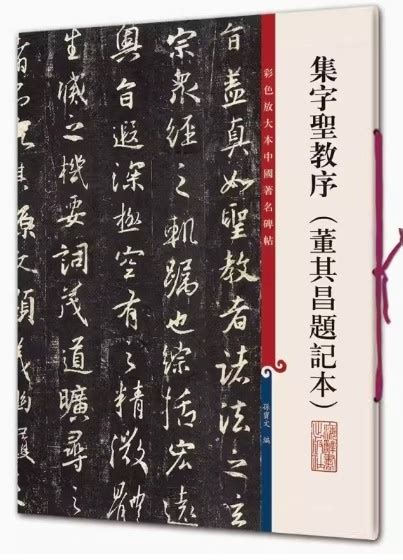 集字聖教序（董其昌題記本）
彩色放大本中國著名碑帖
孫寶文 編
旨蓋真如聖教者諸法之玄
宗衆經之軌躅也綜括宏遠
奧旨遐深極空有之精微體
生滅之機要詞茂道曠尋之
者不究其源文顯義幽履